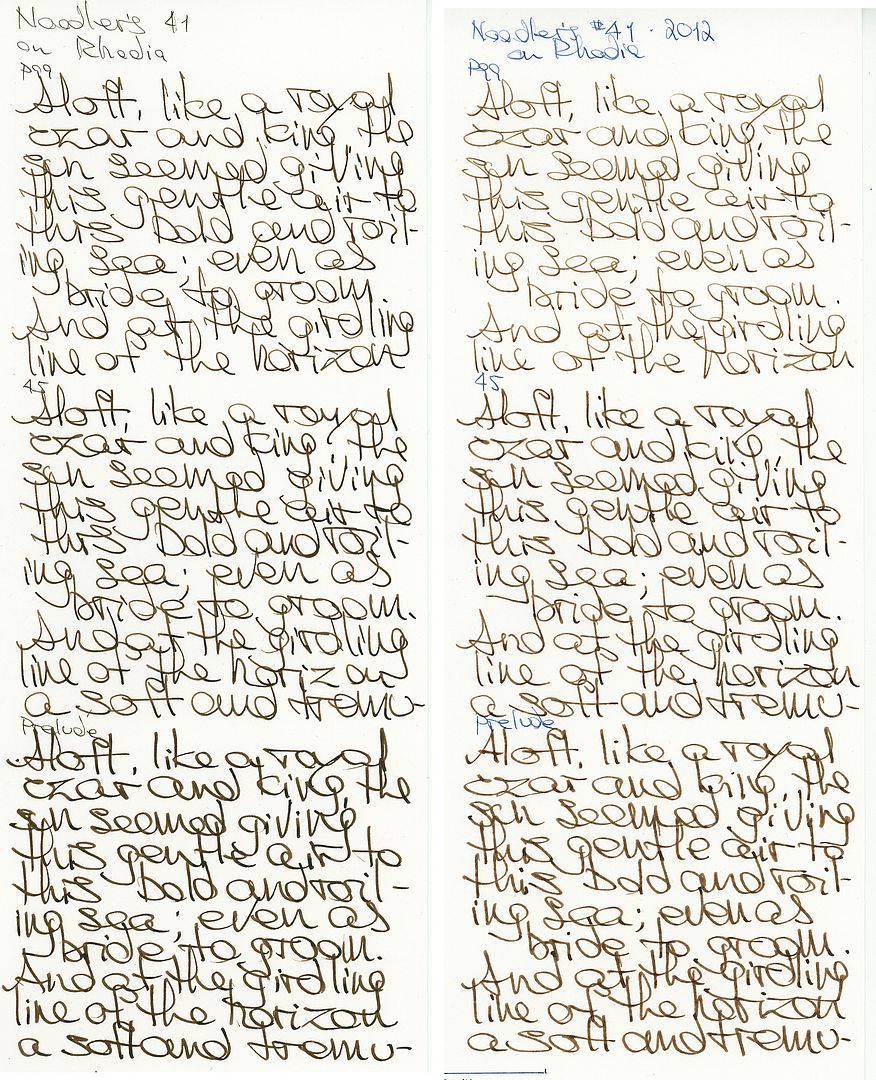 Noodler's 41
on Rhodia
P99
Aloft, like a royal
czar and king, the
sun seemed giving
this gentle air to
this bold and roll-
ing sea; even as
bride to groom.
And at the girdling
line of the horizon
45
Aloft, like a royal
czar and king, the
sun seemed giving
this gentle air to
this bold and roll-
ing sea; even as
bride to groom.
And at the girdling
line of the horizon
a soft and tremu-
Prelude
Aloft, like a royal
czar and king, the
sun seemed giving
this gentle air to
this bold and roll-
ing sea; even as
bride to groom.
And at the girdling
line of the horizon
a soft and tremu-
Noodler's #41 · 2012
on Rhodia
P99
Aloft, like a royal
czar and king, the
sun seemed giving
this gentle air to
this bold and roll-
ing sea; even as
bride to groom.
And at the girdling
line of the horizon
45
Aloft, like a royal
czar and king, the
sun seemed giving
this gentle air to
this bold and roll-
ing sea; even as
bride to groom.
And at the girdling
line of the horizon
a soft and tremu-
Prelude
Aloft, like a royal
czar and king, the
sun seemed giving
this gentle air to
this bold and roll-
ing sea; even as
bride to groom.
And at the girdling
line of the horizon
a soft and tremu-